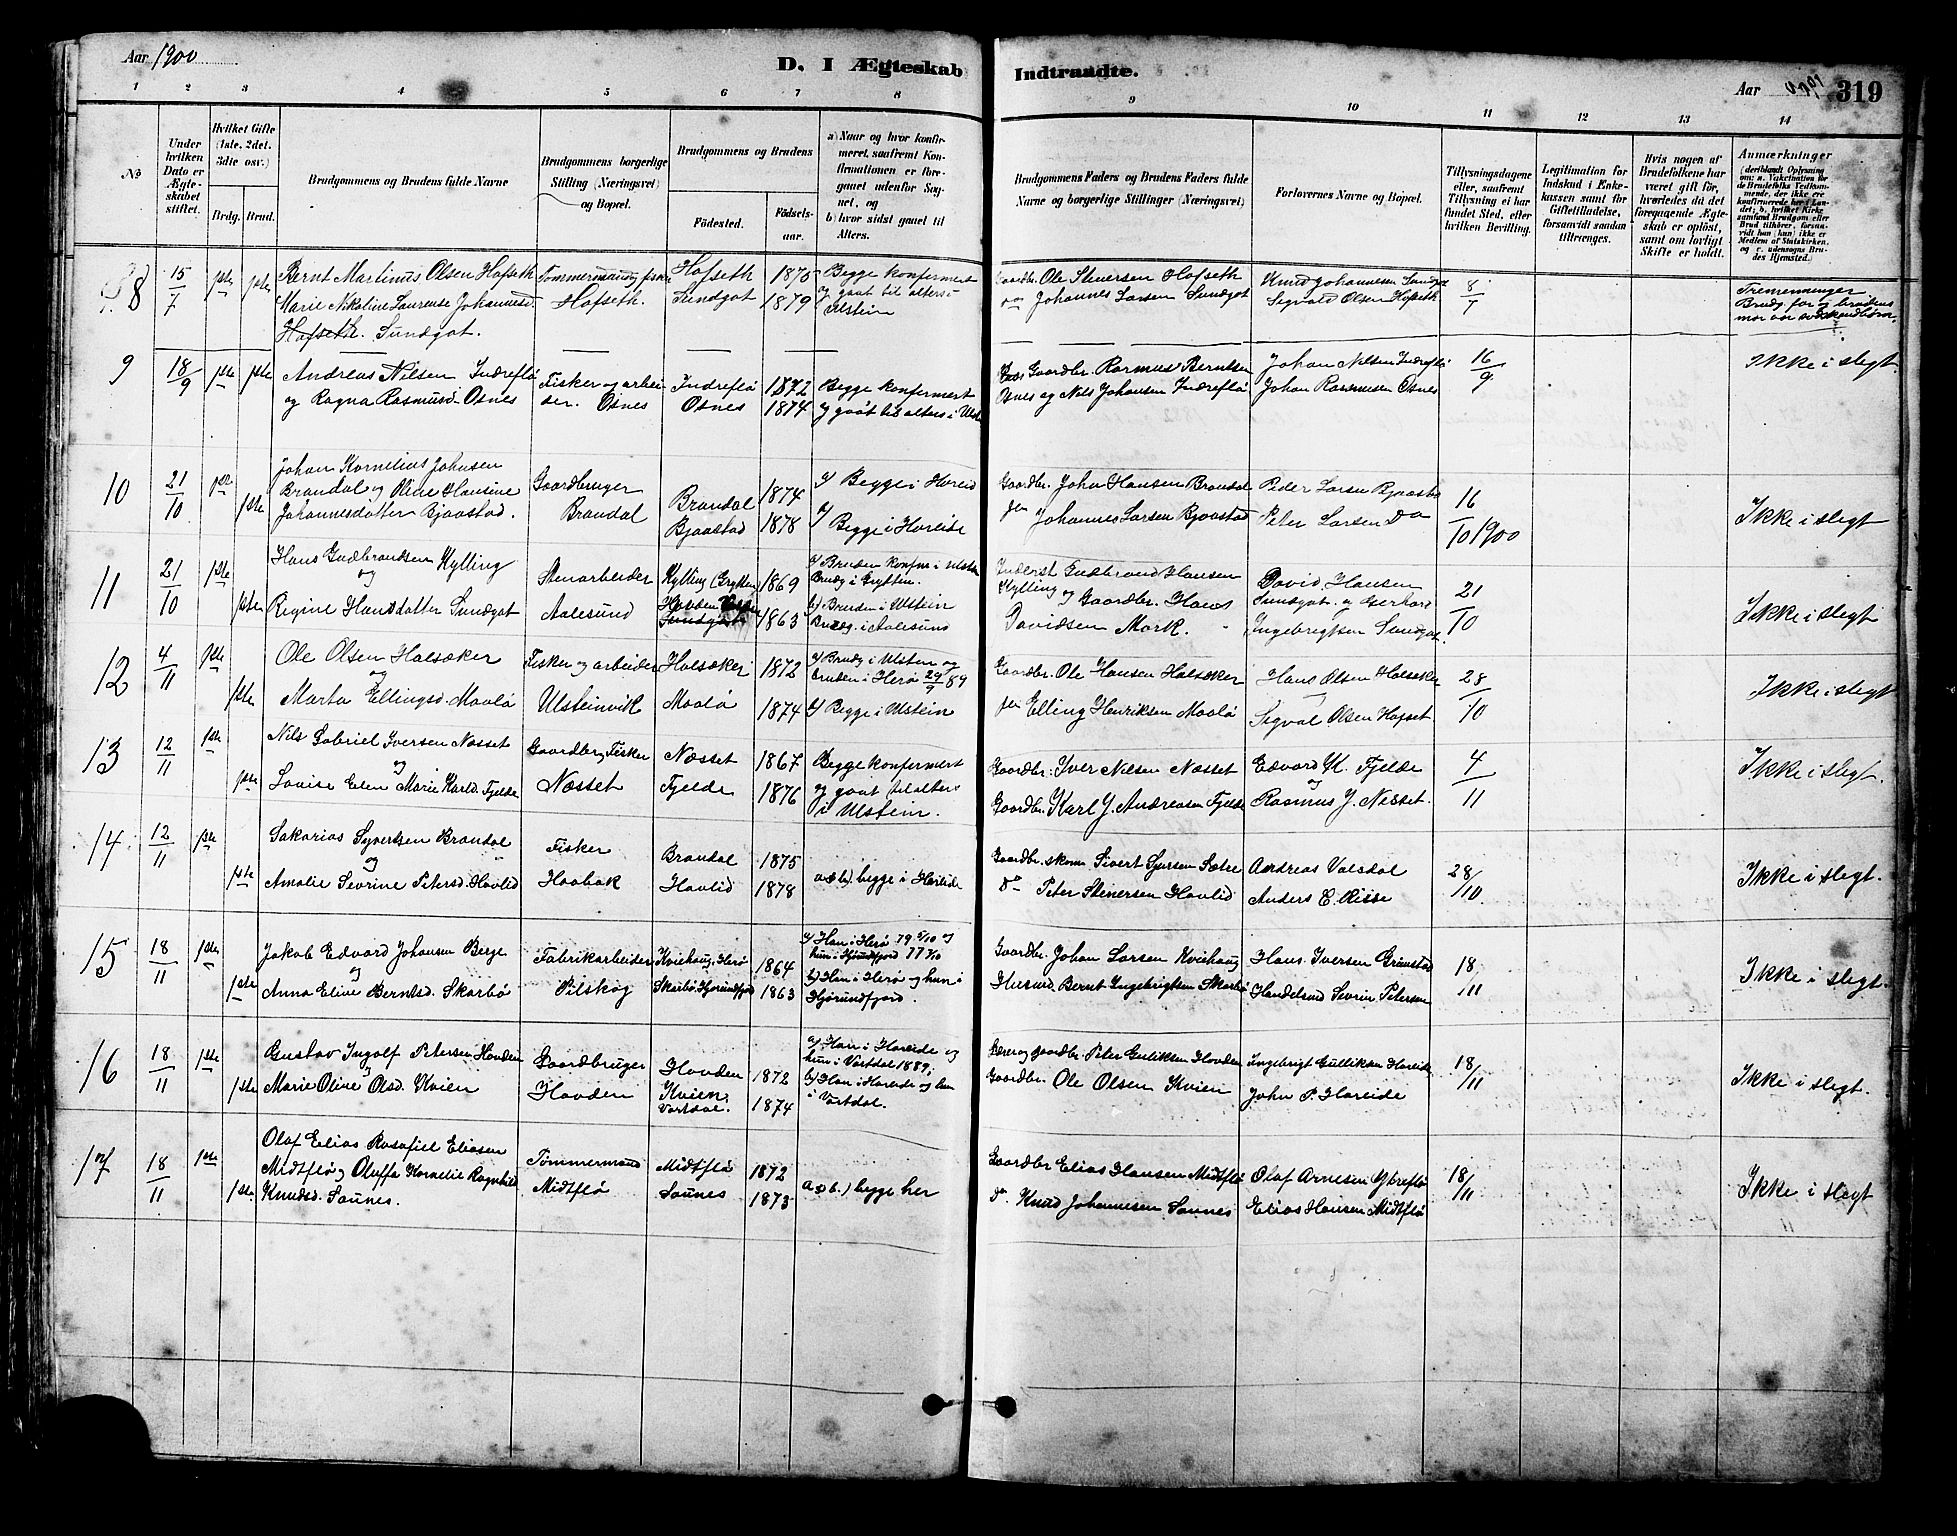 Aar 1900
D. I Ægteskab Indtraadte.
Aar 1900 319
1 2 3 4 5 6 7 8 9 10 11 12 13 14
No
Under hvilken Dato er Ægteskabet stiftet.
Hvilket Gifte (1ste, 2det, 3die osv.)
Brdg. Brud.
Brudgommens og Brudens fulde Navne
Brudgommens borgerlige Stilling (Næringsvei) og Bopæl.
Brudgommens og Brudens
Fødested. Fødselsaar.
a) Naar og hvor konfirmeret, saafremt Konfirmationen er foregaaet udenfor Sognet, og
b) hvor sidst gaaet til Alters.
Brudgommens Faders og Brudens Faders fulde Navne og borgerlige Stillinger (Næringsvei)
Forlovernes Navne og Bopæl.
Tillysningsdagene eller, saafremt Tillysning ei har fundet Sted, efter hvilken Bevilling.
Legitimation for Indskud i Enkekassen samt for Giftetilladelse, forsaavidt saadan tiltrænges.
Hvis nogen af Brudefolkene har været gift før, hvorledes da det foregaaende Ægteskab er opløst, samt om lovligt Skifte er holdt.
Anmærkninger
(deriblandt Oplysning om: a. Vaksination for de Brudefolks Vedkommende, der ikke ere konfirmerede her i Landet; b. hvilket Kirkesamfund Brudgom eller Brud tilhører, forsaavidt han (hun) ikke er Medlem af Statskirken, og c. udensogns Brudes Hjemsted.
8 15/7 1ste 1ste
Bernt Martinus Olsen Hofseth
Marie Nikoline Laurense Johannesd.
Hofseth. Sundgot.
Tømmermand og fisker
Hofseth.
Hofseth 1875
Sundgot 1879
Begge konfermert
og gaat til alters i
Ulstein
Gaardbr. Ole Steversen Hofseth
do Johannes Larsen Sundgot
Knud Johannesen Sundgot
Segvald Olsen Hofseth
8/7
Tremenninger
Brudg. far og brudens
mor var søskendbørn.
9 18/9 1ste 1ste
Andreas Nilsen Indreflø
og Ragna Rasmusd. Osnes
Fisker og arbeider. Osnes
Indreflø 1872
Osnes 1874
Begge konfermert
og gaat til alters i Ulstein
Gaardbr. Rasmus Berntsen
Osnes og Nils Johansen Indreflø
Johan Nilsen Indreflø
Johan Rasmusen Osnes
16/9
Ikke i slegt.
10 21/10 1ste 1ste
Johan Kornelius Johnsen
Brandal og Oline Hansine
Johannesdatter Bjaastad.
Gaardbruger
Brandal
Brandal 1874
Bjaastad 1878
a/ Begge i Hareid
b/ Begge i Hareide
Gaardbr. John Hansen Brandal
do Johannes Larsen Bjaastad
Peder Larsen Bjaastad
Peter Larsen Do
16/10 1900
Ikke i slegt
11 21/10 1ste 1ste
Hans Gudbrandsen Kylling
og
Regine Hansdatter Sundgot
Stenarbeider
Aalesund
Kylling (Grytten) 1869
Hovden
Sundgot 1863
a/ Bruden konfm i Ulstein
Brudg i Grytten.
b/ Bruden i Ulstein
Brudg. i Aalesund
Inderst Gudbrand Hansen
Kylling og Gaardbr. Hans
Davidsen Mork.
David Hansen
Sundgot og Gerhard
Ingebrigtsen Sundgot.
21/10
Ikke i slegt.
12 4/11 1ste 1ste
Ole Olsen Halsæker
og
Marta Ellingsd. Moalø
Fisker og arbeider
Ulsteinvik
Halsæker 1872
Moalø 1874
a/ Brudg i Ulstein og
bruden i Herø 29/9 89
b/ Begge i Ulstein
Gaardbr. Ole Hansen Halsæker
do Elling Henriksen Moalø
Hans Olsen Halsæker
Segval Olsen Hofset
28/10
Ikke i slegt
13 12/11 1ste 1ste
Nils Gabriel Iversen Næsset
og
Lovise Elen Marie Karlsd. Fjelde
Gaardbr. og Fisker
Næsset
Næsset 1867
Fjelde 1876
Begge konfermert
og gaat til alters
i Ulstein.
Gaardbr. Iver Nilsen Næsset
Gaardbr. Karl J. Andreasen Fjelde
Edvard K. Fjelde
og
Rasmus J. Nesset.
4/11
Ikke i slegt.
14 12/11 1ste 1ste
Sakarias Syvertsen Brandal
og
Amalie Sevrine Petersd. Hovlid
Fisker
Haabak
Brandal 1875
Hovlid 1878
a & b). begge i Hareide
Gaardbr. skom Sivert Sjursen Sætre
do Peter Steinersen Hovlid
Andreas Valsdal
Anders E. Risse
28/10
Ikke i slegt.
15 18/11 1ste 1ste
Jakob Edvard Johansen Berge
og
Anna Eline Berntsd. Skarbø
Fabrikarbeider
Pilskog
Kviehaug, Herø 1864
Skarbø, Hjørundfjord 1863
a/ Han i Herø 79 5/10 og
hun i Hjørundfjord 77
b) Han i Herø og hun i
Hjørundfjord.
Gaardbr. Johan Larsen Kviehaug
Husmd. Bernt Ingebrigtsen Skarbø
Hans Iversen Grimstad
Handelsmd Sevrin Petersen
18/11
Ikke i slegt.
16 18/11 1ste 1ste
Gustav Ingolf Petersen Hovden
og
Marie Oline Olsd. Kvien
Gaardbruger
Hovden
Hovden 1872
Kvien,
Vartdal. 1874
a/ Han i Hareide og
hun i Vartdal 1889;
b) Han i Hareide og hun
i Vartdal.
Lærer og gaardbr. Peter Guliksen Hovden
Gaardbr. Ole Olsen Kvien
Ingebrigt Gulliksen Hareide
John P. Hareide
18/11
Ikke i slegt.
17 18/11 1ste 1ste
Olaf Elias Rasafiel Eliasen
Midtflø og Oluffa Kornelie Ragnhild
Knudsd. Saunes.
Tømmermand
Midtflø
Midtflø 1872
Saunes 1873
a & b.) begge her
Gaardbr Elias Hansen Midtflø
do. Knud Johannesen Saunes
Olaf Arnesen Ytreflø
Elias Hansen Midtflø
18/11
Ikke i slegt